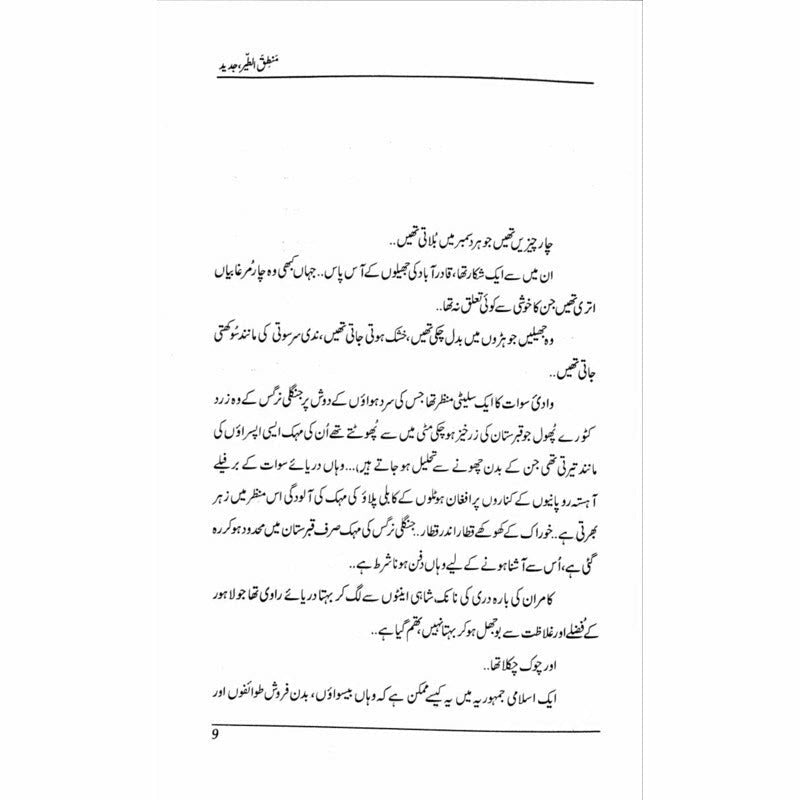 مَنطِقُ الطَّیر، جدید
چار چیزیں تھیں جو ہر دسمبر میں بُلاتی تھیں..
ان میں سے ایک شکار تھا، قادر آباد کی جھیلوں کے آس پاس.. جہاں کبھی وہ چار مُرغابیاں
اتری تھیں جن کا خوشی سے کوئی تعلق نہ تھا..
وہ جھیلیں جوہڑوں میں بدل چکی تھیں، خشک ہوتی جاتی تھیں، ندی سرسوتی کی مانند سُوکھتی
جاتی تھیں..
وادیٔ سوات کا ایک سلیٹی منظر تھا جس کی سرد ہواؤں کے دوش پر جنگلی نرگس کے وہ زرد
کٹورے پُھول جو قبرستان کی زرخیز ہو چکی مٹی میں سے پُھوٹتے تھے اُن کی مہک ایسی اپسراؤں کی
مانند تیرتی تھی جن کے بدن چھونے سے تحلیل ہو جاتے ہیں... وہاں دریائے سوات کے برفیلے
آہستہ رو پانیوں کے کناروں پر افغان ہوٹلوں کے کابلی پلاؤ کی مہک کی آلودگی اس منظر میں زہر
بھرتی ہے.. خوراک کے کھوکھے قطار اندر قطار.. جنگلی نرگس کی مہک صرف قبرستان میں محدود ہو کر رہ
گئی ہے، اُس سے آشنا ہونے کے لیے وہاں دفن ہونا شرط ہے..
کامران کی بارہ دری کی نانک شاہی اینٹوں سے لگ کر بہتا دریائے راوی تھا جو لاہور
کے فُضلے اور غلاظت سے بوجھل ہو کر بہتا نہیں، تھم گیا ہے..
اور چوک چکلا تھا..
ایک اسلامی جمہوریہ میں یہ کیسے ممکن ہے کہ وہاں بیسواؤں، بدن فروش طوائفوں اور
9